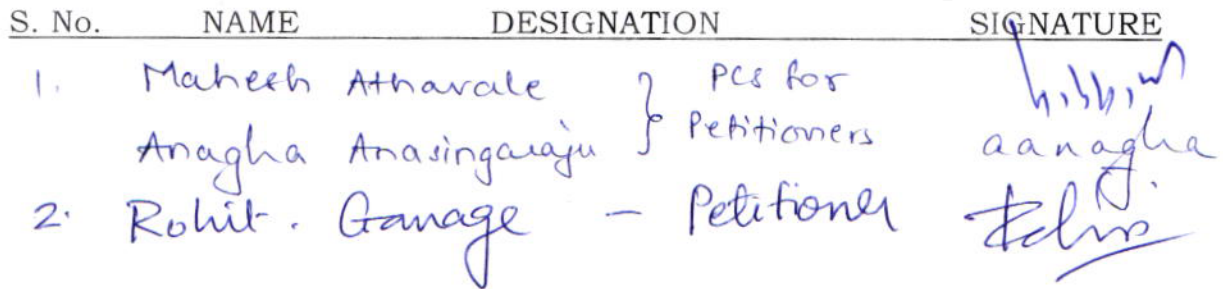 S. No. NAME DESIGNATION SIGNATURE
1. Mahesh Athavale } PCS for
Anagha Anasingaraju Petitioners aanagha
2. Rohit. Ganage - Petitioner